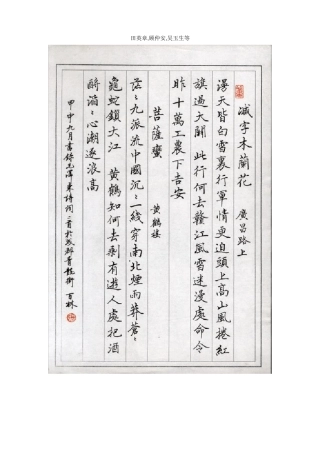 田英章,顾仲安,吴玉生等
減字木蘭花 廣昌路上
漫天皆白雪裏行軍情更迫頭上高山風捲紅
旗過大關 此行何去贛江風雪迷漫處命令
昨頒十萬工農下吉安
菩薩蠻 黃鶴樓
茫〻九派流中國沉〻一线穿南北煙雨莽蒼〻
龜蛇鎖大江 黃鶴知何去剩有遊人處把酒
酹滔〻心潮逐浪高
甲申九月書錄毛澤東詩詞二首於成都青龍街 百林